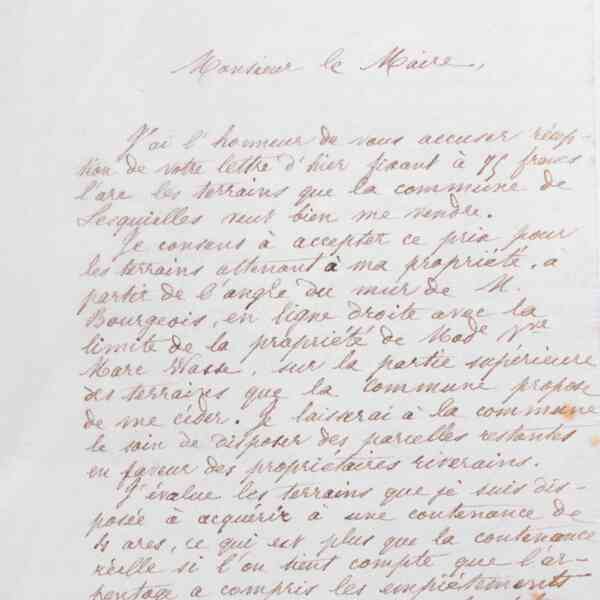 Monsieur le Maire,
J'ai l'honneur de vous accuser récep-
tion de votre lettre d'hier fixant à 75 francs
l'are les terrains que la commune de
Lesquielles veut bien me vendre.
Je consens à accepter ce prix pour
les terrains attenant à ma propriété, à
partir de l'angle du mur de M.
Bourgeois, en ligne droite avec la
limite de la propriété de Made Vve
Marc Wasse, sur la partie supérieure
des terrains que la commune propose
de me céder. Je laisserai à la commune
le soin de disposer des parcelles restantes
en faveur des propriétaires riverains.
J'évalue les terrains que je suis dis-
posée à acquérir à une contenance de
4 ares, ce qui est plus que la contenance
réelle si l'on tient compte que l'ar-
pentage a compris les empiétements